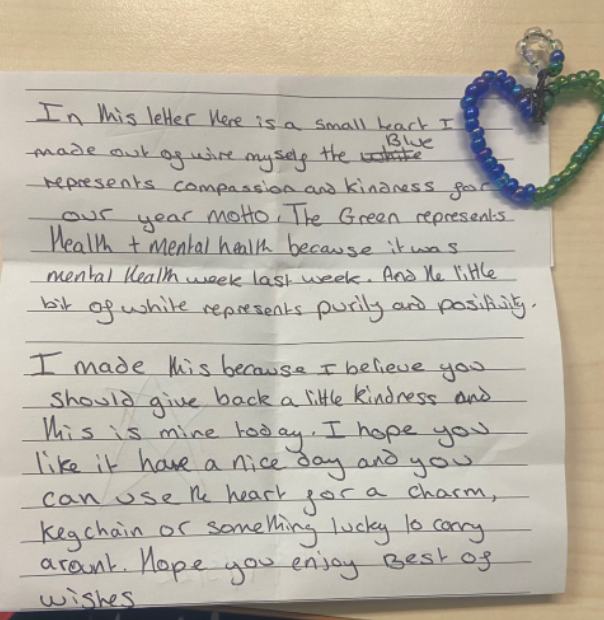 In this letter Here is a small heart I
made out of wire myself the white Blue
represents compassion and kindness for
our year motto. The Green represents
Health + mental health because it was
mental Health week last week. And the little
bit of white represents purity and positivity.
I made this because I believe you
should give back a little kindness and
this is mine today. I hope you
like it have a nice day and you
can use the heart for a charm,
kegchain or something lucky to carry
arount. Hope you enjoy Best of
wishes